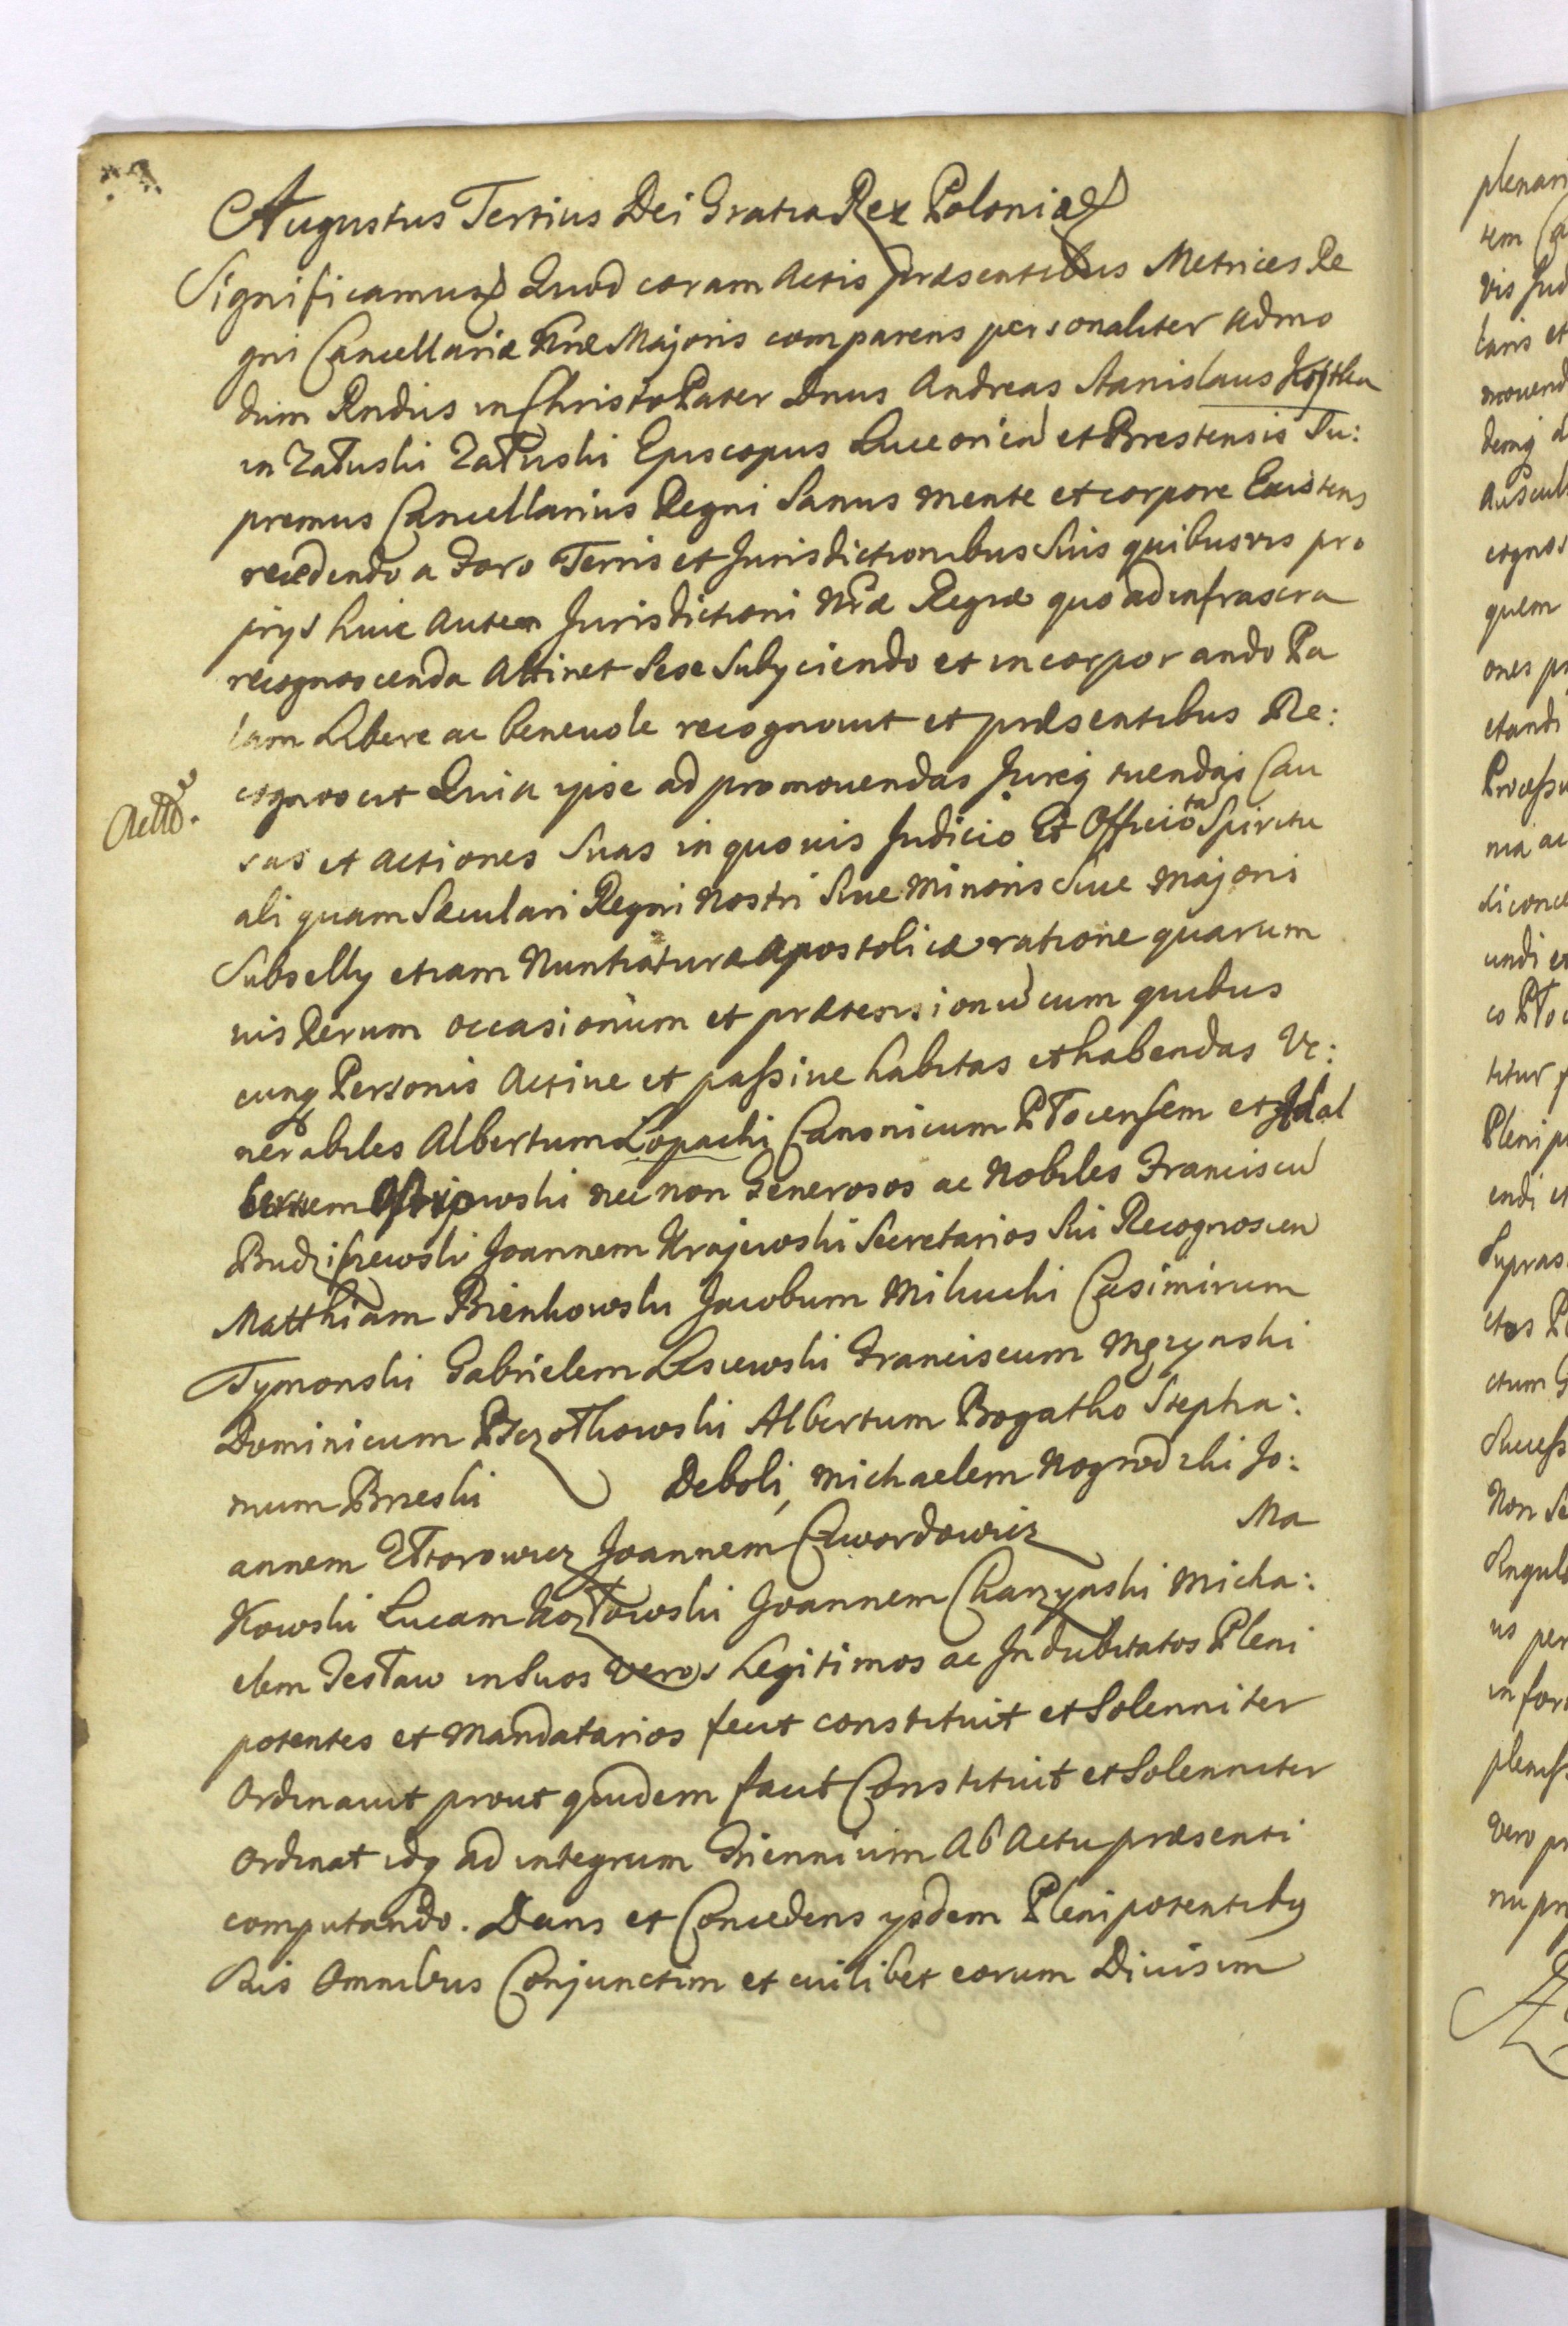 Augustus Tertius Dei Gratia Rex Poloniæ
Significamus Quod coram Actis præsentibus Metrices Re
gni Cancellariæ Nræ Majoris comparens personaliter Admo
dum Rndus in Christo Pater Dnus Andreas Stanislaus Kostka
in Załuski Załuski Episcopus Luceorien et Brestensis Su:
premus Cancellarius Regni Sanus mente et corpore Existens
recedendo a Foro Terris et Jurisdictionibus Suis quibusvis pro
prys huic Autem Jurisdictioni Nræ Regiæ quo ad infrascra
recognoscenda Attinet Sese Subyciendo et incorporando Pa
lam Libere ac benevole recognovit et præsentibus Re:
cognoscit Quia ipse ad promovendas Jureq tuendas Cau
sas et Actiones Suas in quovis Judicio Et Officio ta Spiritu
ali quam Sæculari Regni Nostri Sive Minoris Sive Majoris
Subselly etiam Nuntiaturæ Apostolicæ ratione quarum
vis Rerum occasionum et prætensionu cum quibus
cunq Personis Active et passive habitas et habendas Ve:
nerabiles Albertum Łopacki Canonicum Płocensem et Adal
bertum nec non Generosos ac Nobiles Franciscu
Budziszewski Joannem Krajewski Secretarios Sui Recognoscen
Matthiam Bienkowski Jacobum Milucki Casimirum
Tymonski Gabrielem Lesiewski Franciscum Mgzynski
Dominicum Pszczołkowski Albertum Bogatko Stepha:
num Brzeski Deboli, Michaelem Nogrodzki Jo:
annem Joannem Czwordowicz Ma
Kowski Lucam Kozłowski Joannem Charzynski Micha:
elem Jesław in Suos Veros Legitimos ac Indubitatos Pleni
potentes et Mandatarios fecit constituit et Solenniter
Ordinavit prout quidem facit Constituit et Solenniter
Ordinat idq ad integrum Triennium Ab Actu præsenti
computando. Dans et Concedens ysdem Plenipotentibq
Suis Omnibus Conjunctim et cuilibet eorum Divisim